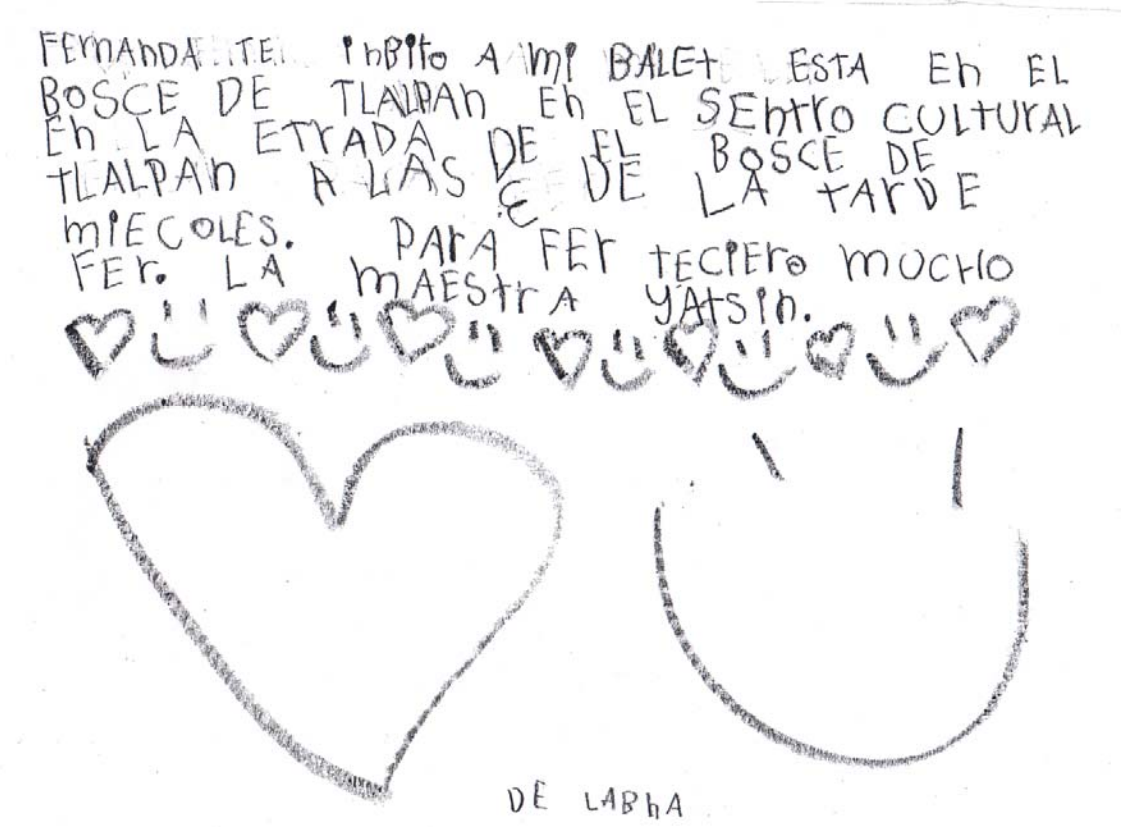 FErnAnDA TE inBito A mi BALEt ESTA En EL
BOSCE DE TLALPAn En EL SEntro CULTUrAL
En LA ETrADA DE EL BOSCE DE
tLALPAn A LAS DE LA tArDE
miECOLES. PArA FEr tECiEro mUCHO
FEr. LA mAEStrA YAtSin.
DE LABnA